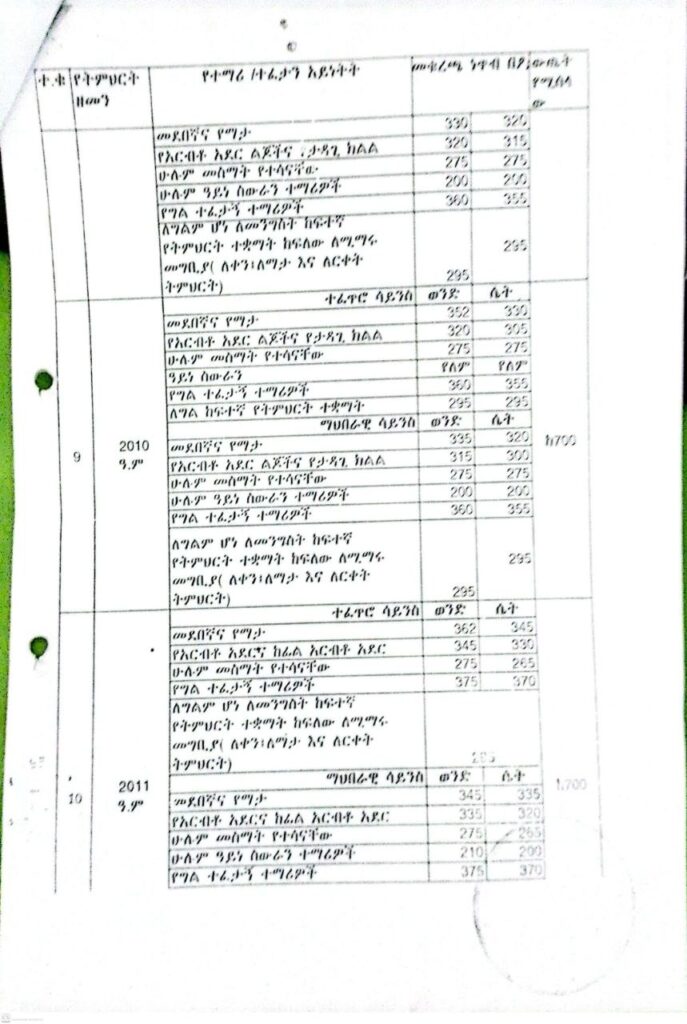 ተ.ቁ የትምህርት ዘመን የተማሪ /ተፈታን አይነትት መቁረጫ ነጥብ በፆታ ውጤት የሚሰላው
መደበኛና የማታ 330 320
የአርብቶ አደር ልጆችና ታዳጊ ክልል 320 315
ሁሉም መስማት የተሳናቸው 275 275
ሁሉም ዓይነ ስውራን ተማሪዎች 200 200
የግል ተፈታኝ ተማሪዎች 360 355
ለግልም ሆነ ለመንግስት ከፍተኛ
የትምህርት ተቋማት ከፍለው ለሚማሩ 295
መግቢያ( ለቀን፣ለማታ እና ለርቀት
ትምህርት) 295
ተፈጥሮ ሳይንስ ወንድ ሴት
መደበኛና የማታ 352 330
የአርብቶ አደር ልጆችና የታዳጊ ክልል 320 305
ሁሉም መስማት የተሳናቸው 275 275
ዓይነ ስውራን የለም የለም
የግል ተፈታኝ ተማሪዎች 360 355
ለግል ከፍተኛ የትምህርት ተቋማት 295 295
ማህበራዊ ሳይንስ ወንድ ሴት
9 2010 ዓ.ም መደበኛና የማታ 335 320 ከ700
የአርብቶ አደር ልጆችና የታዳጊ ክልል 315 300
ሁሉም መስማት የተሳናቸው 275 275
ሁሉም ዓይነ ስውራን ተማሪዎች 200 200
የግል ተፈታኝ ተማሪዎች 360 355
ለግልም ሆነ ለመንግስት ከፍተኛ
የትምህርት ተቋማት ከፍለው ለሚማሩ 295
መግቢያ( ለቀን፣ለማታ እና ለርቀት
ትምህርት) 295
ተፈጥሮ ሳይንስ ወንድ ሴት
መደበኛና የማታ 362 345
የአርብቶ አደርና ከፊል አርብቶ አደር 345 330
ሁሉም መስማት የተሳናቸው 275 265
የግል ተፈታኝ ተማሪዎች 375 370
ለግልም ሆነ ለመንግስት ከፍተኛ
የትምህርት ተቋማት ከፍለው ለሚማሩ
መግቢያ( ለቀን፣ለማታ እና ለርቀት
ትምህርት)
ማህበራዊ ሳይንስ ወንድ ሴት
10 2011 ዓ.ም መደበኛና የማታ 345 335 700
የአርብቶ አደርና ከፊል አርብቶ አደር 335 320
ሁሉም መስማት የተሳናቸው 275 265
ሁሉም ዓይነ ስውራን ተማሪዎች 210 200
የግል ተፈታኝ ተማሪዎች 375 370